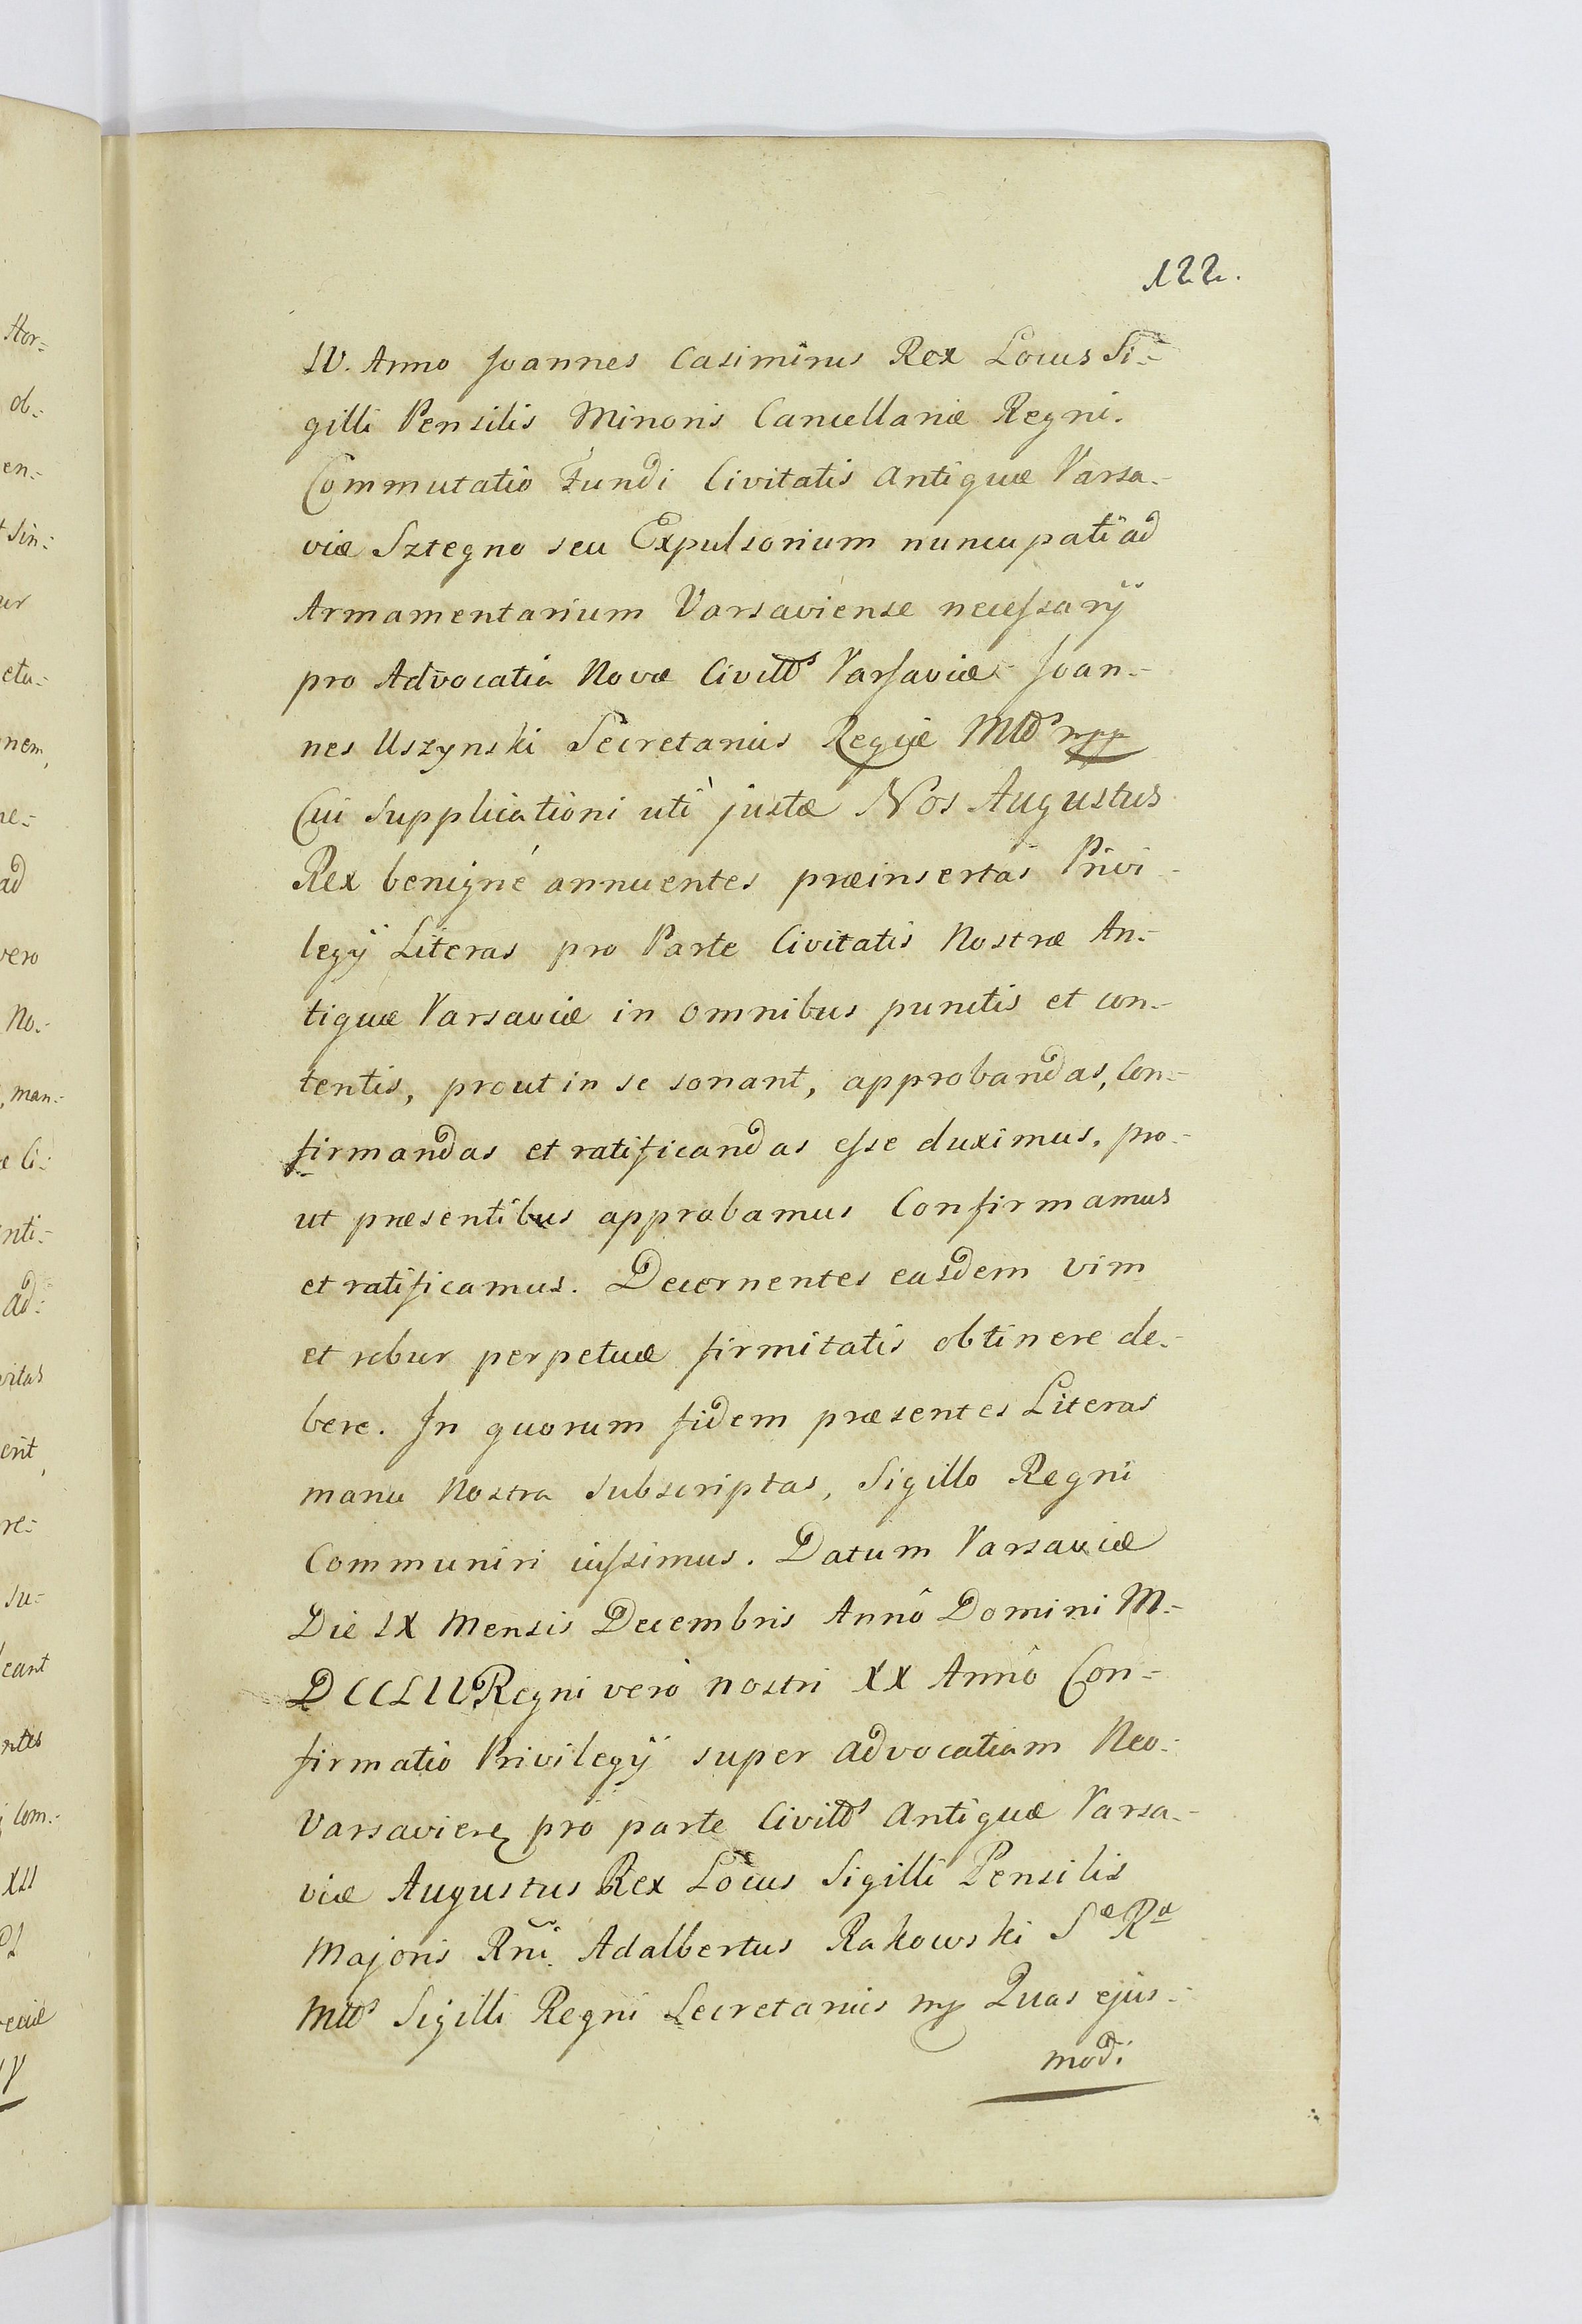 122.
IV. Anno Joannes Casimirus Rex Locus Si-
gilli Pensilis Minoris Cancellariæ Regni.
Commutatio Fundi Civitatis Antiquæ Varsa-
viæ Sztegno seu Expulsorium nuncupati ad
Armamentarium Varsaviense necessarÿ
pro Advocatia Novæ Civittis Varsaviæ Joan-
nes Uszynski Secretarius Regiæ Mttis mpp
Cui Supplicationi utì justæ Nos Augustus
Rex benigné annuentes præinsertas Privi-
legÿ Literas pro Parte Civitatis Nostræ An-
tiquæ Varsaviæ in omnibus punctis et con-
tentis, prout in se sonant, approbandas, Con-
firmandas et ratificandas esse duximus, pro-
ut præsentibus approbamus Confirmamus
et ratificamus. Decernentes easdem vim
et robur perpetuæ firmitatis obtinere de-
bere. In quorum fidem præsentes Literas
manu Nostra subscriptas, Sigillo Regni
Communiri iussimus. Datum Varsaviæ
Die IX Mensis Decembris Annô Domini M-
DCCLII Regni verò nostri XX Annô Con-
firmatio Privilegÿ super Advocatiam Neo-
Varsavien pro parte Civittis Antiquæ Varsa-
viæ Augustus Rex Locus Sigilli Pensilis
Majoris Rñi Adalbertus Rakowski Sæ Ræ
Mttis Sigilli Regni Secretarius mp Quas ejus-
modi
Hor-
ob-
en-
ad
vero
No-
man-
ad-
re-
su-
Com-
XII